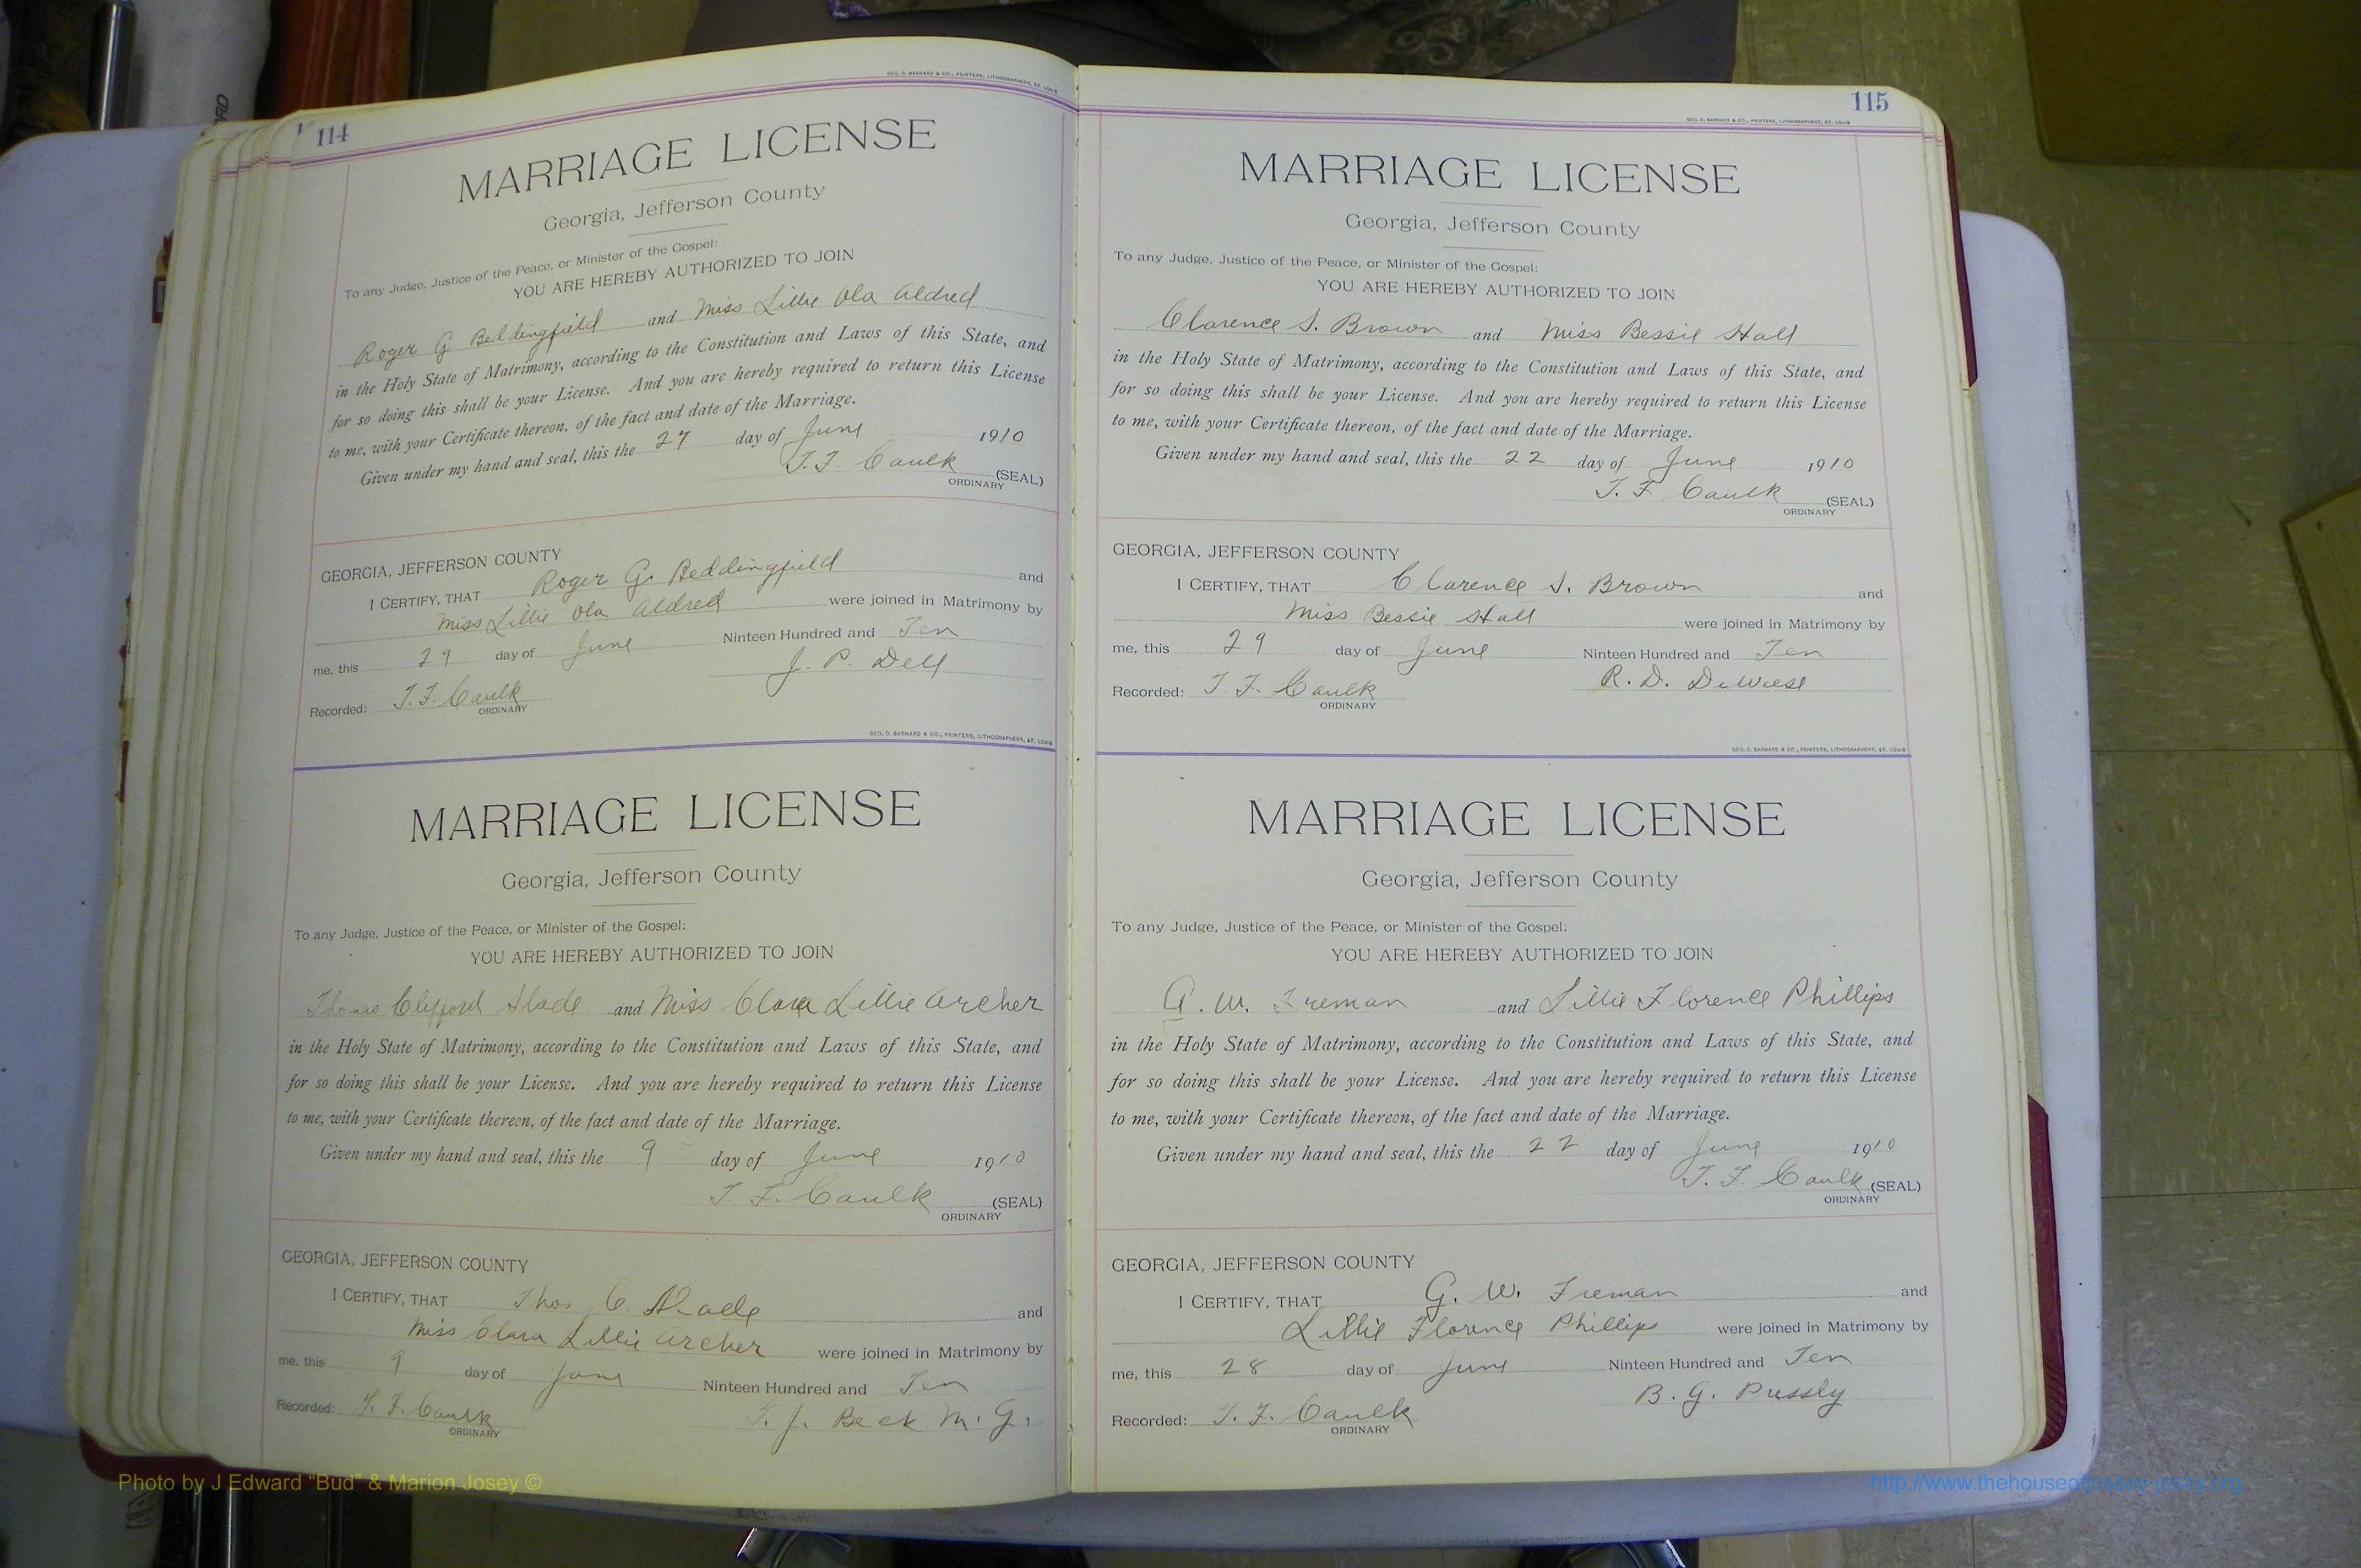 114
GEO. D. BARNARD & CO., PRINTERS, LITHOGRAPHERS, ST. LOUIS
MARRIAGE LICENSE
Georgia, Jefferson County
To any Judge, Justice of the Peace, or Minister of the Gospel:
YOU ARE HEREBY AUTHORIZED TO JOIN
Roger G Beddingfield and Miss Lillie Ola Aldred
in the Holy State of Matrimony, according to the Constitution and Laws of this State, and
for so doing this shall be your License. And you are hereby required to return this License
to me, with your Certificate thereon, of the fact and date of the Marriage.
Given under my hand and seal, this the 27 day of June 1910
T. F. Caulk (SEAL)
ORDINARY
GEORGIA, JEFFERSON COUNTY
I CERTIFY, THAT Roger G. Beddingfield and
Miss Lillie Ola Aldred were joined in Matrimony by
me, this 29 day of June Ninteen Hundred and Ten
J. P. Dell
Recorded: T. F. Caulk
ORDINARY
GEO. D. BARNARD & CO., PRINTERS, LITHOGRAPHERS, ST. LOUIS
MARRIAGE LICENSE
Georgia, Jefferson County
To any Judge, Justice of the Peace, or Minister of the Gospel:
YOU ARE HEREBY AUTHORIZED TO JOIN
Thomas Clifford Slade and Miss Clara Lillie Archer
in the Holy State of Matrimony, according to the Constitution and Laws of this State, and
for so doing this shall be your License. And you are hereby required to return this License
to me, with your Certificate thereon, of the fact and date of the Marriage.
Given under my hand and seal, this the 9 day of June 1910
T. F. Caulk (SEAL)
ORDINARY
GEORGIA, JEFFERSON COUNTY
I CERTIFY, THAT Thos C. Slade and
Miss Clara Lillie Archer were joined in Matrimony by
me, this 9 day of June Ninteen Hundred and Ten
Recorded: T. F. Caulk T. J. Beck M. G.
ORDINARY
115
GEO. D. BARNARD & CO., PRINTERS, LITHOGRAPHERS, ST. LOUIS
MARRIAGE LICENSE
Georgia, Jefferson County
To any Judge, Justice of the Peace, or Minister of the Gospel:
YOU ARE HEREBY AUTHORIZED TO JOIN
Clarence S. Brown and Miss Bessie Hall
in the Holy State of Matrimony, according to the Constitution and Laws of this State, and
for so doing this shall be your License. And you are hereby required to return this License
to me, with your Certificate thereon, of the fact and date of the Marriage.
Given under my hand and seal, this the 22 day of June 1910
T. F. Caulk (SEAL)
ORDINARY
GEORGIA, JEFFERSON COUNTY
I CERTIFY, THAT Clarence S. Brown and
Miss Bessie Hall were joined in Matrimony by
me, this 29 day of June Ninteen Hundred and Ten
Recorded: T. F. Caulk R. D. DeWeese
ORDINARY
GEO. D. BARNARD & CO., PRINTERS, LITHOGRAPHERS, ST. LOUIS
MARRIAGE LICENSE
Georgia, Jefferson County
To any Judge, Justice of the Peace, or Minister of the Gospel:
YOU ARE HEREBY AUTHORIZED TO JOIN
G. W. Freman and Lillie Florence Phillips
in the Holy State of Matrimony, according to the Constitution and Laws of this State, and
for so doing this shall be your License. And you are hereby required to return this License
to me, with your Certificate thereon, of the fact and date of the Marriage.
Given under my hand and seal, this the 22 day of June 1910
T. F. Caulk (SEAL)
ORDINARY
GEORGIA, JEFFERSON COUNTY
I CERTIFY, THAT G. W. Freman and
Lillie Florence Phillips were joined in Matrimony by
me, this 28 day of June Ninteen Hundred and Ten
B. G. Pressly
Recorded: T. F. Caulk
ORDINARY
Photo by J Edward “Bud” & Marion Josey ©